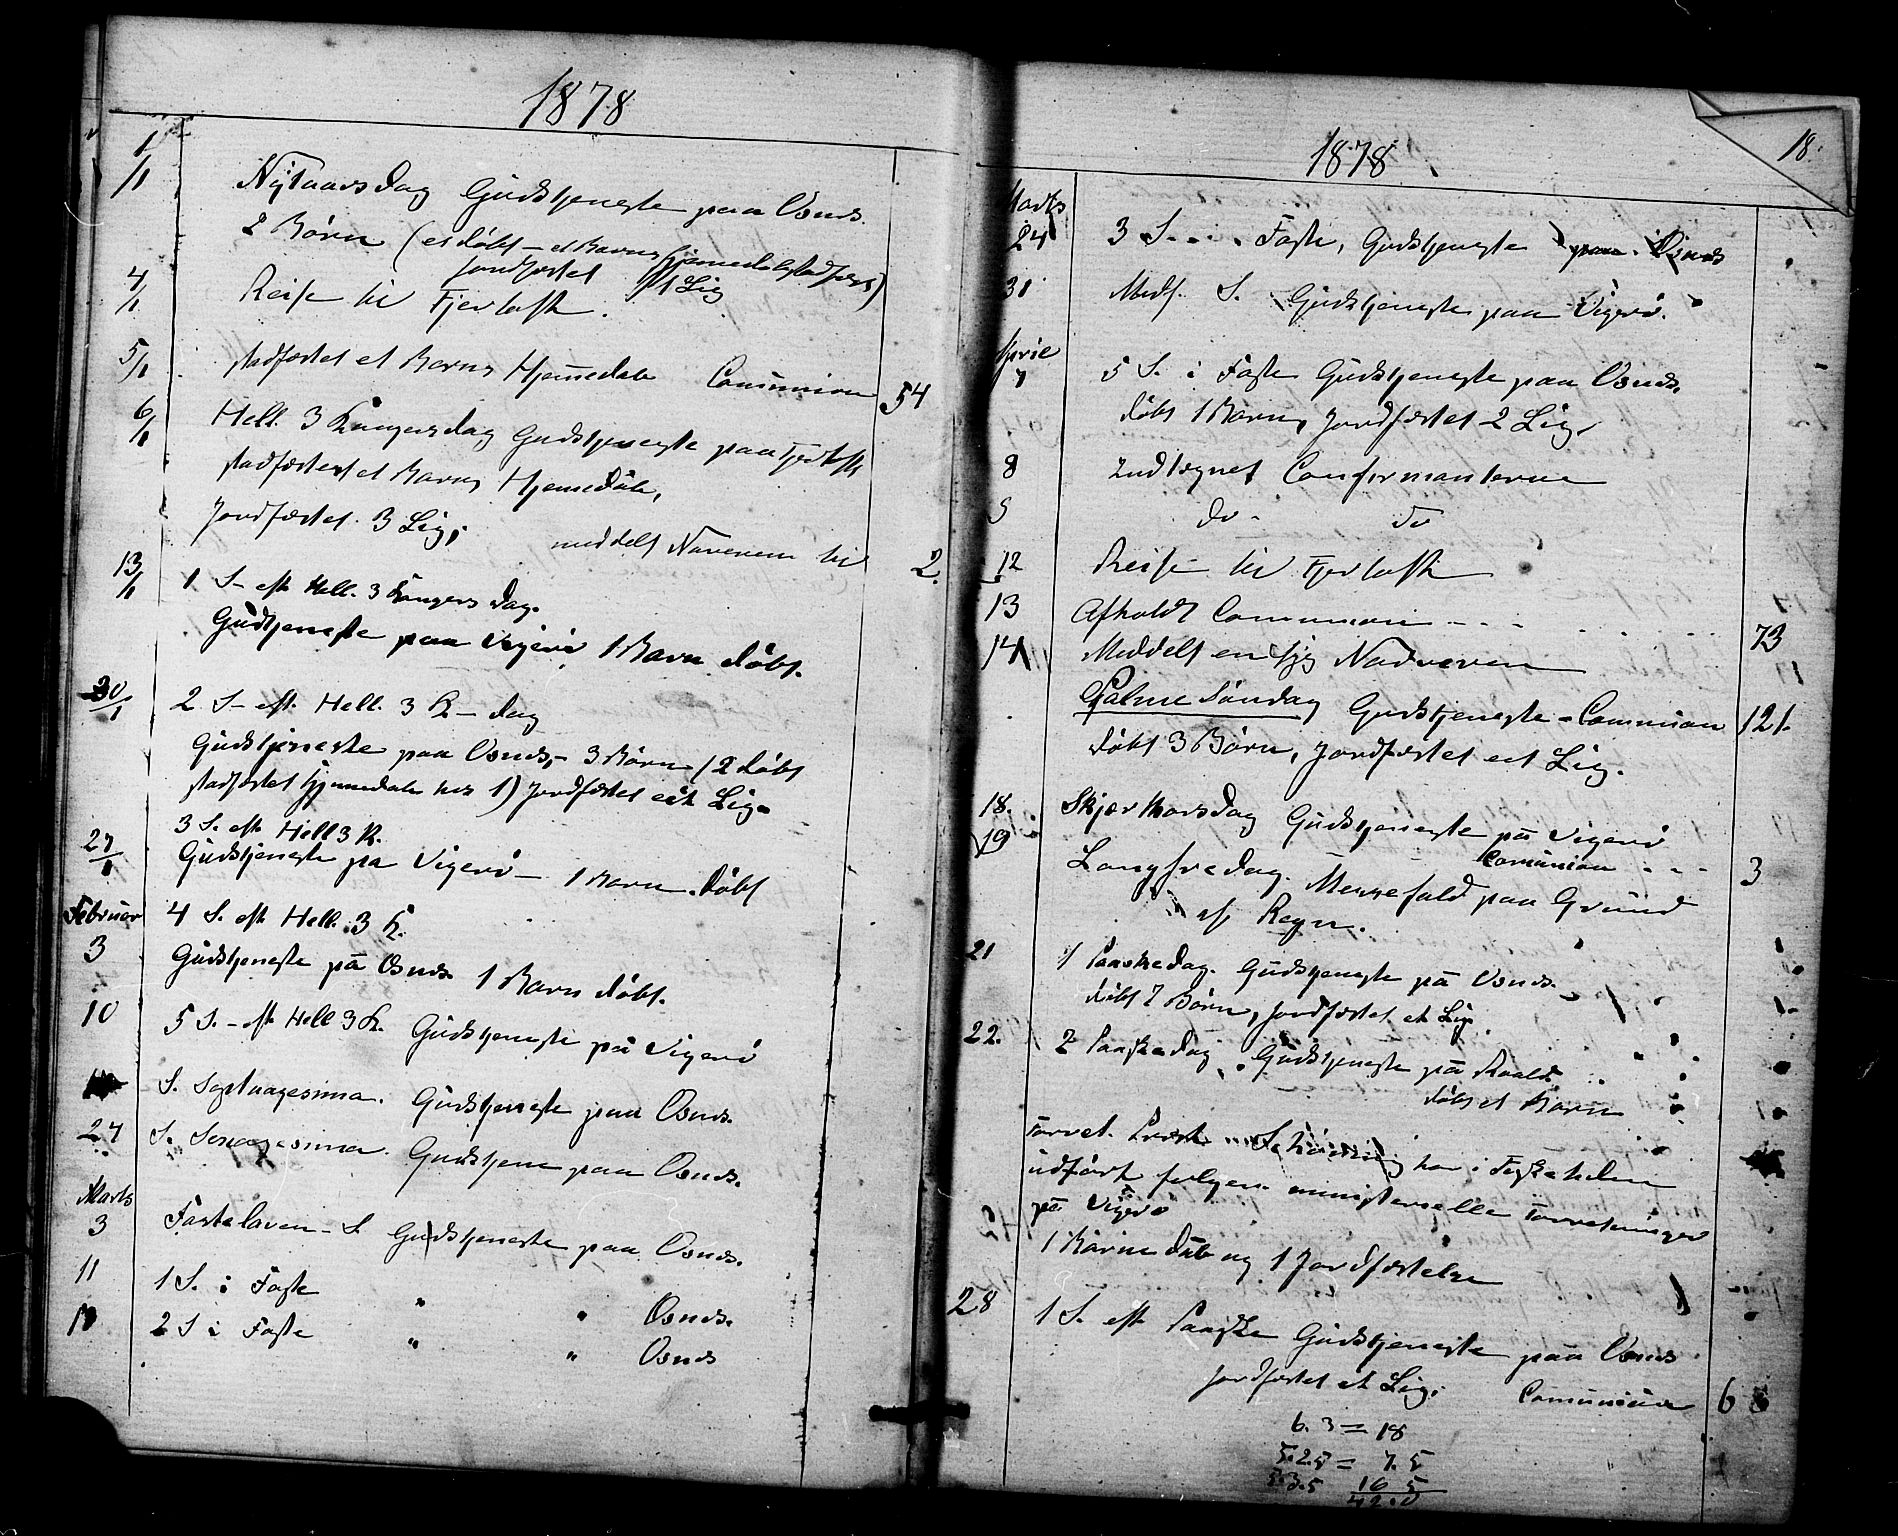 1878
1/1 Nytaarsdag Gudstjeneste paa Osnes.
2 Børn (et døbt – et Barns Hjemmedaab stadfæst)
jordfæstet 1 Lig
4/1 Reise til Fjertoft.
5/1 stadfæstet et Barns Hjemmedaab Comunion 54
6/1 Hell. 3 Kongersdag Gudstjeneste paa Fjertoft
stadfæstet et Barns Hjemmedåb,
Jordfæstet 3 Lig, meddelt Naveren til 2.
13/1 1 S. eft Hell. 3 Kongers Dag.
Gudtjeneste paa Vigerö 1 Barn døbt.
20/1 2 S. eft. Hell. 3 K – dag
Gudstjeneste paa Osnes, – 3 Børn (2 døbt
stadfæstet Hjemmedaab hos 1) Jordfæstet eet Lig.
3 S. eft Hell 3 K.
27/1 Gudstjeneste pa Vigerö – 1 Barn døbt
Februar 4 S. eft Hell. 3 K.
3 Gudstjeneste på Osnes. 1 Barn døbt.
10 5 S. – eft Hell 3 K. Gudstjeneste på Vigerö
S. Septuagesima. Gudstjeneste paa Osnes.
24 S. Sexagesima. Gudstjene paa Osnes.
Marts
3 Fastelaven – S Gudstjeneste paa Osnes.
11 1 S. i Faste " " Osnes.
2 S i Faste " " Osnes
1878 18.
Marts
24 3 S. i Faste, Gudstjeneste paa Osnes
31 Midf. S. Gudstjeneste paa Vigerö.
April
7 5 S. i Faste Gudstjeneste paa Osnes.
døbt 1 Barn, Jordfæstet 2 Lig.
8 Indtegnet Confirmanterne
9 do - do
12 Reise til Fjertoft
13 Afholdt Comunion - - - 73
14 Meddelt en syg Nadveren
Palme Søndag Gudstjeneste – Comunion 121.
døbt 3 Børn, Jordfæstet eet Lig.
18. Skjærthorsdag Gudstjeneste på Vigerö
Comunion - - - 3
19 Langfredag. Messefald paa Grund
af Regn.
21 1 Paaskedag. Gudstjeneste på Osnes.
døbt 7 Børn, Jordfæstet et Lig.
22. 2 Paaskedag. Gudstjeneste på Roald
døbt et Barn
Forret. Præst har i Fiskehelen
udført følgen. ministerielle Forretninger
på Vigerö
1 Børne Dåb og 1 Jordfæstelse
28 1 S. eft Paaske Gudstjeneste paa Osnes
Jordfæstet et Lig. Comunion 6
6. 3 = 18
5.2.5 = 7.5
5.3.5 16 5
42.0